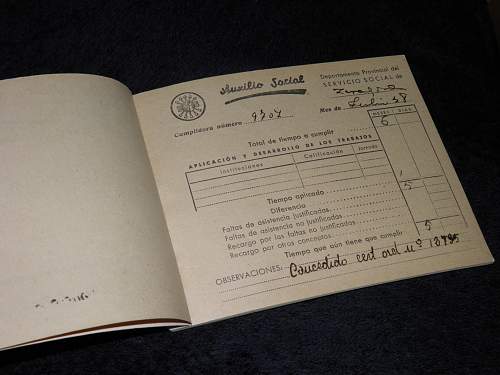 Auxilio Social
Departamento Provincial del
SERVICIO SOCIAL de
Zaragoza
Cumplidora número 9307 Mes de Julio 38
MESES DIAS
Total de tiempo a cumplir 6
APLICACIÓN Y DESARROLLO DE LOS TRABAJOS
Instituciones Calificación Jornada
Tiempo aplicado 1
Diferencia 5
Faltas de asistencia justificadas
Faltas de asistencia no justificadas
Recargo por las faltas no justificadas
Recargo por otros conceptos
Tiempo que aún tiene que cumplir 5
OBSERVACIONES: Concedido cert ord nº 18795